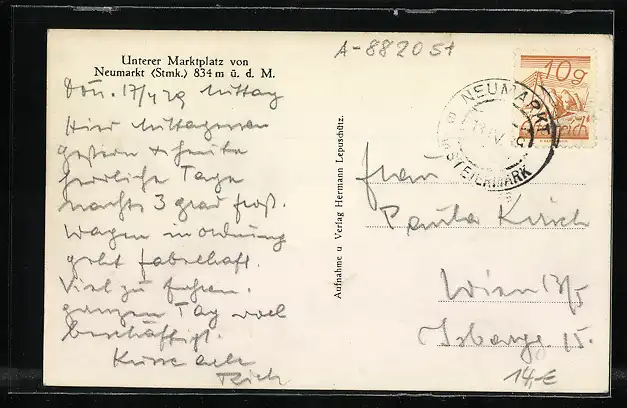 A-8820 St
Unterer Marktplatz von
Neumarkt (Stmk.) 834 m ü. d. M.
Don. 17/4 29 Mittag
Hier Mittagessen
gestern + heute
herrliche Tage
nachts 3 grad frost.
Wagen in ordnung
geht fabelhaft.
Viel zu fahren.
ganzen Tag voll
beschäftigt.
Küsse alle
Aufnahme u Verlag Hermann Lepuschütz.
10g
NEUMARKT
STEIERMARK
Frau
Paula Kirsch
Wien 13/5
15.
14,-€